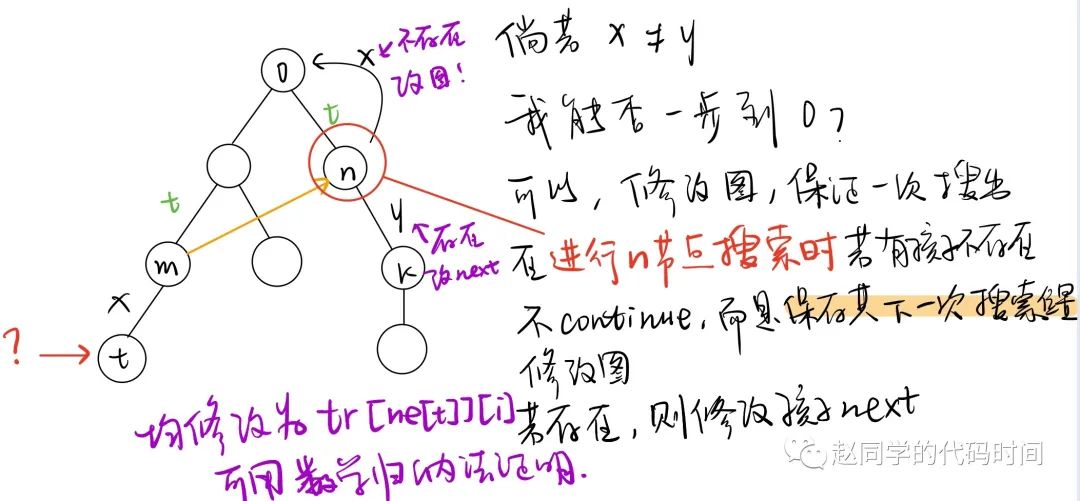 0
x
不存在
改图!
t
n
t
y
存在
改next
m
k
x
? t
倘若 x ≠ y
我能否一步到 0?
可以, 修改图, 保证一次搜出
在进行n节点搜索时若有孩子不存在
不continue, 而是保存其下一次搜索
修改图
若存在, 则修改孩子next
均修改为 tr[ne[t]][i]
可用数学归纳法证明.
赵同学的代码时间